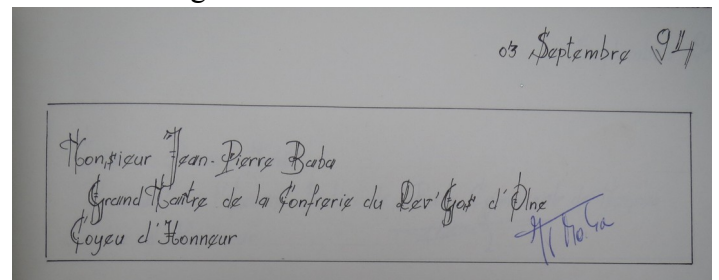 03 Septembre 94
Monsieur Jean-Pierre Baba
Grand Maître de la Confrerie du Rev' Gos' d'Olne
Coyeu d'Honneur